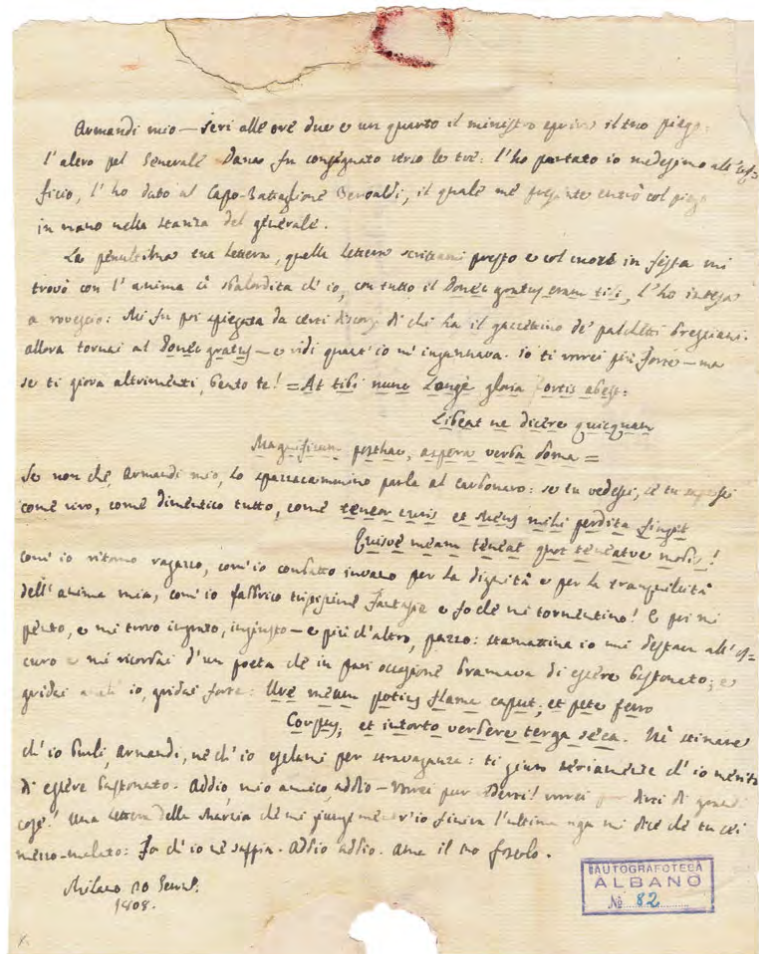 Armandi mio — Ieri alle ore due e un quarto il ministro apriva il tuo piego:
l'altro pel Generale Danna fu consegnato verso le tre: l'ho portato io medesimo all'uf=
ficio, l'ho dato al Capo-Battaglione Beroaldi, il quale me presente entrò col piego
in mano nella stanza del generale.
La penultima tua lettera, quella lettera scrittami presto e col cuore in festa mi
trovò con l'anima sì sbalordita ch'io, con tutto il Donec gratus eram tibi, l'ho intesa
a rovescio: Mi fu poi spiegata da certi discorsi di chi ha il gazzettino de' palchetti bresciani.
allora tornai al Donec gratus — e vidi quant'io m'ingannava. Io ti vorrei più forte — ma
se ti giova altrimenti, beato te! = At tibi nunc longe gloria fortis abest:
Libeat ne dicere quicquam
Magnificum posthac, aspera verba doma =
Se non che, Armandi mio, lo spazzacammino parla al carbonaro: se tu vedessi, se tu sapessi
come vivo, come dimentico tutto, come teneor curis et Mens mihi perdita fingit
Quisve meam teneat quot teneatve modis!
com'io ritorno ragazzo, com'io combatto invano per la dignità e per la tranquillità
dell'anima mia, com'io fabbrico tristissime fantasie e fo che mi tormentino! E poi mi
pento, e mi trovo ingrato, ingiusto — e più ch'altro, pazzo: stamattina io mi destava all'os=
curo e mi ricordai d'un poeta che in pari occasione bramava di essere bastonato; e
gridai anch'io, gridai forte: Ure meum potius flama caput, et pete ferro
Corpus, et intorto verbere terga seca. Nè stimare
ch'io burli, Armandi, nè ch'io esclami per stravaganza: ti giuro seriamente ch'io merito
di essere bastonato. Addio, mio amico, addio — Vorrei pur vederti! vorrei dirti di grandi
cose! Una lettera della Marzia che mi giunge mentr'io finiva l'ultima riga mi dice che tu sei
mezzo-malato: Fa ch'io ne sappia. Addio addio. Ama il tuo Foscolo.
Milano 20 Genn.
1808.
AUTOGRAFOTECA
ALBANO
№ 82